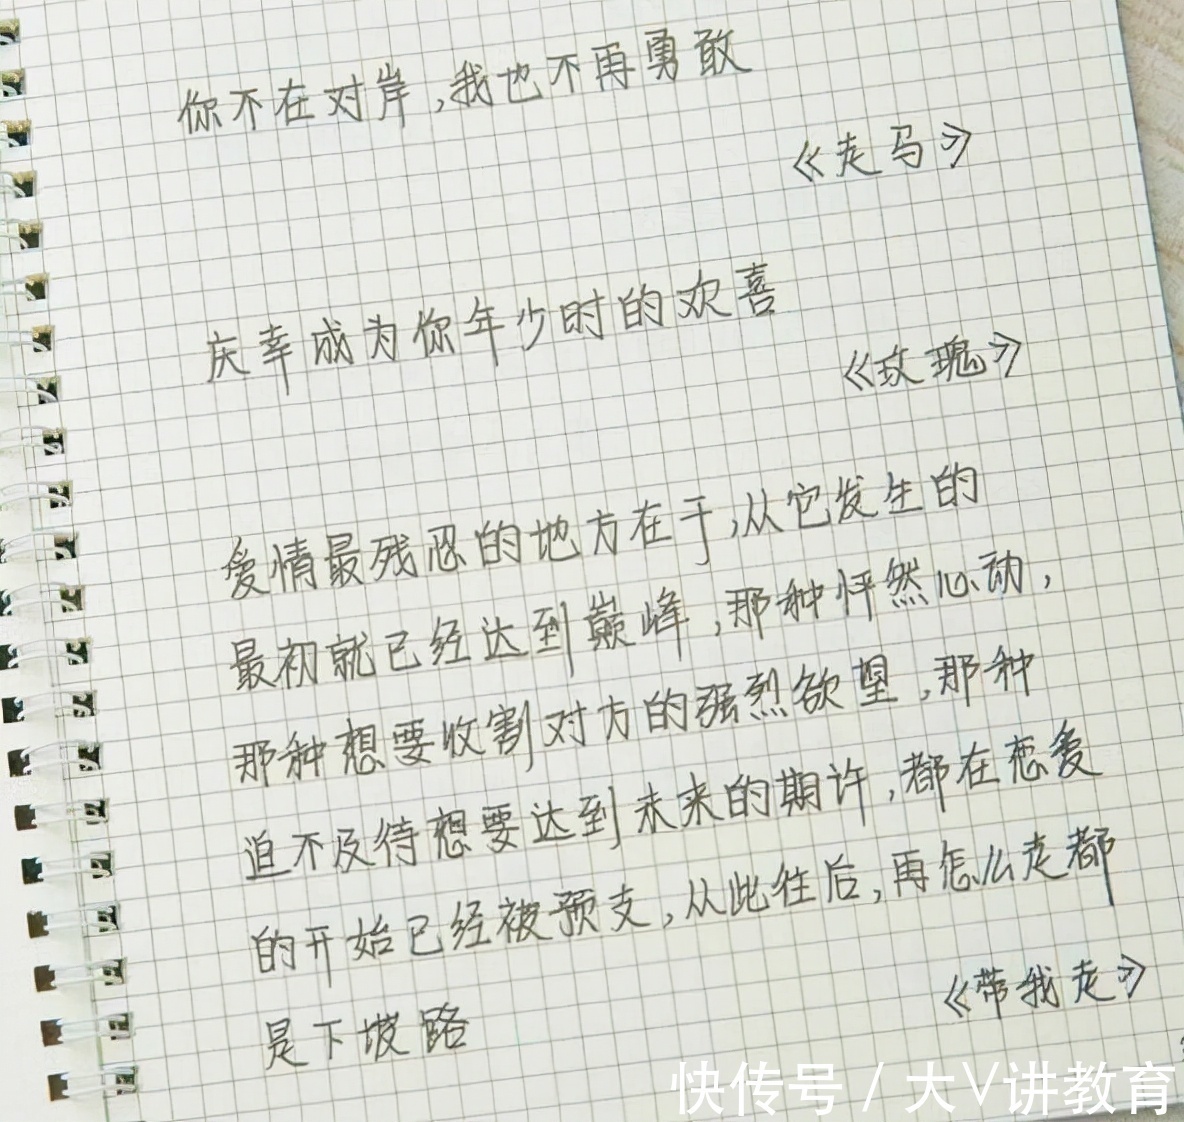 你不在对岸,我也不再勇敢
《走马》
庆幸成为你年少时的欢喜
《玫瑰》
爱情最残忍的地方在于,从它发生的
最初就已经达到巅峰,那种怦然心动,
那种想要收割对方的强烈欲望,那种
迫不及待想要达到未来的期许,都在恋爱
的开始已经被预支,从此往后,再怎么走都
是下坡路
《带我走》
快传号 / 大V讲教育